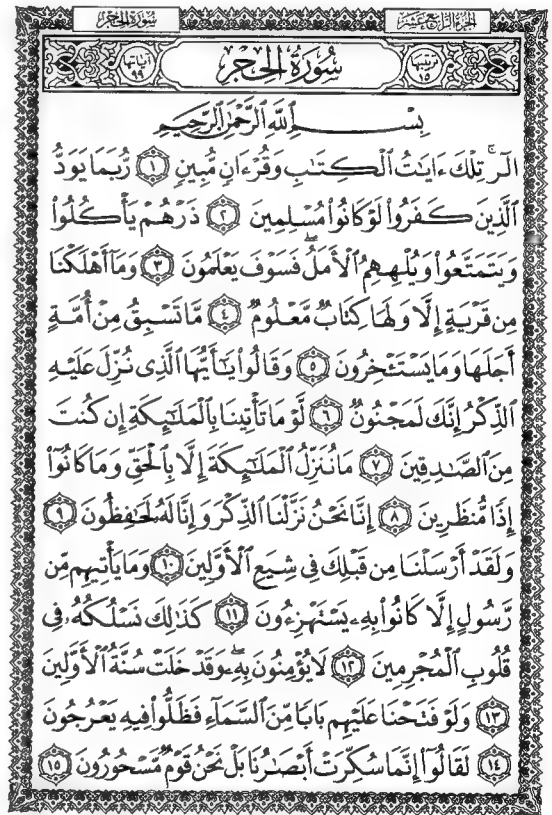 الجزء الرابع عشر
سورة الحجر
ترتيبها ١٥
سُورَةُ الحِجْرِ
آياتها ٩٩
بِسْمِ ٱللَّهِ ٱلرَّحْمَٰنِ ٱلرَّحِيمِ
الٓرۚ تِلْكَ ءَايَٰتُ ٱلْكِتَٰبِ وَقُرْءَانٍ مُّبِينٍ ١ رُّبَمَا يَوَدُّ
ٱلَّذِينَ كَفَرُوا۟ لَوْ كَانُوا۟ مُسْلِمِينَ ٢ ذَرْهُمْ يَأْكُلُوا۟
وَيَتَمَتَّعُوا۟ وَيُلْهِهِمُ ٱلْأَمَلُۖ فَسَوْفَ يَعْلَمُونَ ٣ وَمَآ أَهْلَكْنَا
مِن قَرْيَةٍ إِلَّا وَلَهَا كِتَابٌ مَّعْلُومٌ ٤ مَّا تَسْبِقُ مِنْ أُمَّةٍ
أَجَلَهَا وَمَا يَسْتَـْٔخِرُونَ ٥ وَقَالُوا۟ يَٰٓأَيُّهَا ٱلَّذِى نُزِّلَ عَلَيْهِ
ٱلذِّكْرُ إِنَّكَ لَمَجْنُونٌ ٦ لَّوْ مَا تَأْتِينَا بِٱلْمَلَٰٓئِكَةِ إِن كُنتَ
مِنَ ٱلصَّٰدِقِينَ ٧ مَا نُنَزِّلُ ٱلْمَلَٰٓئِكَةَ إِلَّا بِٱلْحَقِّ وَمَا كَانُوٓا۟
إِذًا مُّنظَرِينَ ٨ إِنَّا نَحْنُ نَزَّلْنَا ٱلذِّكْرَ وَإِنَّا لَهُۥ لَحَٰفِظُونَ ٩
وَلَقَدْ أَرْسَلْنَا مِن قَبْلِكَ فِى شِيَعِ ٱلْأَوَّلِينَ ١٠ وَمَا يَأْتِيهِم مِّن
رَّسُولٍ إِلَّا كَانُوا۟ بِهِۦ يَسْتَهْزِءُونَ ١١ كَذَٰلِكَ نَسْلُكُهُۥ فِى
قُلُوبِ ٱلْمُجْرِمِينَ ١٢ لَا يُؤْمِنُونَ بِهِۦۖ وَقَدْ خَلَتْ سُنَّةُ ٱلْأَوَّلِينَ
١٣ وَلَوْ فَتَحْنَا عَلَيْهِم بَابًا مِّنَ ٱلسَّمَآءِ فَظَلُّوا۟ فِيهِ يَعْرُجُونَ
١٤ لَقَالُوٓا۟ إِنَّمَا سُكِّرَتْ أَبْصَٰرُنَا بَلْ نَحْنُ قَوْمٌ مَّسْحُورُونَ ١٥